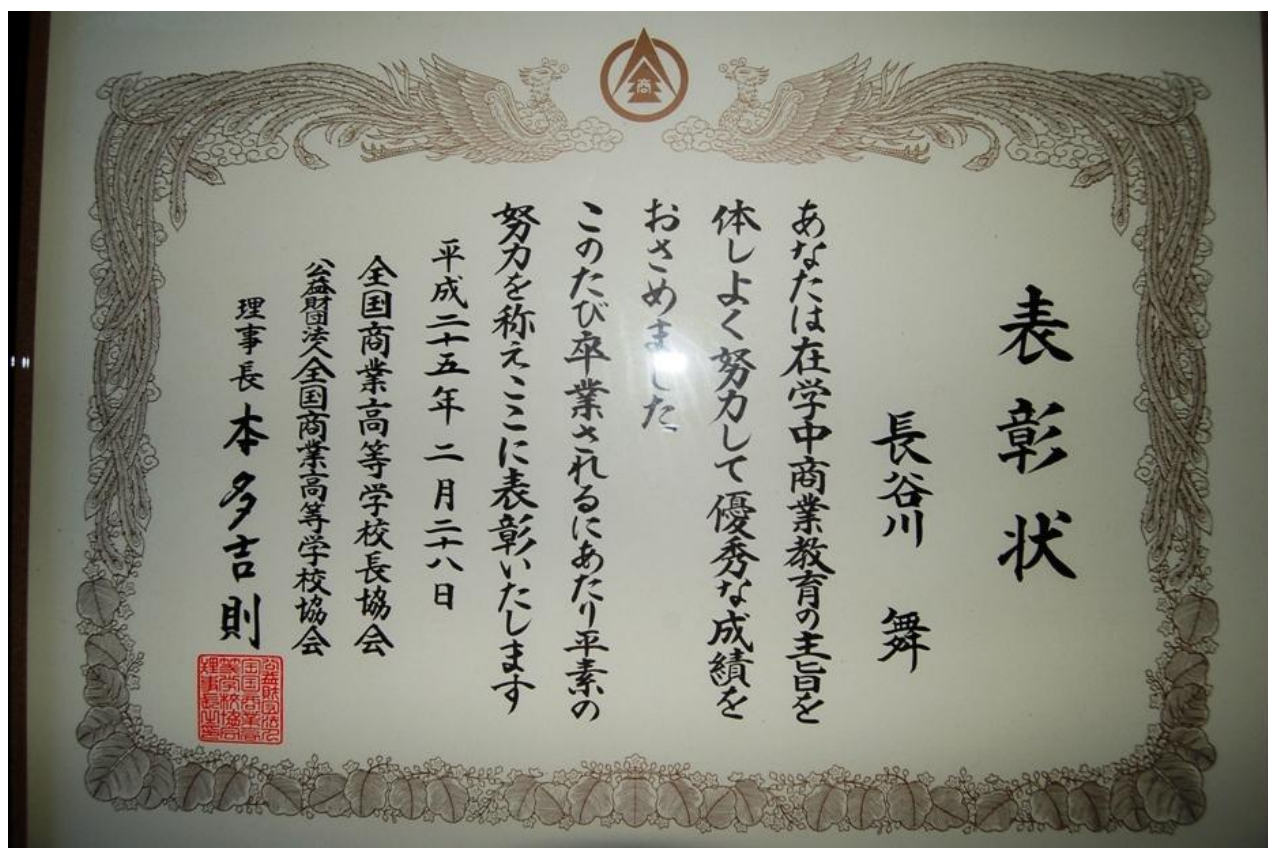 商
表彰状
長谷川 舞
あなたは在学中商業教育の主旨を
体しよく努力して優秀な成績を
おさめました
このたび卒業されるにあたり平素の
努力を称えここに表彰いたします
平成二十五年二月二十八日
全国商業高等学校長協会
公益財団法人全国商業高等学校協会
理事長 本多吉則
公益財団法人
全国商業高
等学校協会
理事長之印